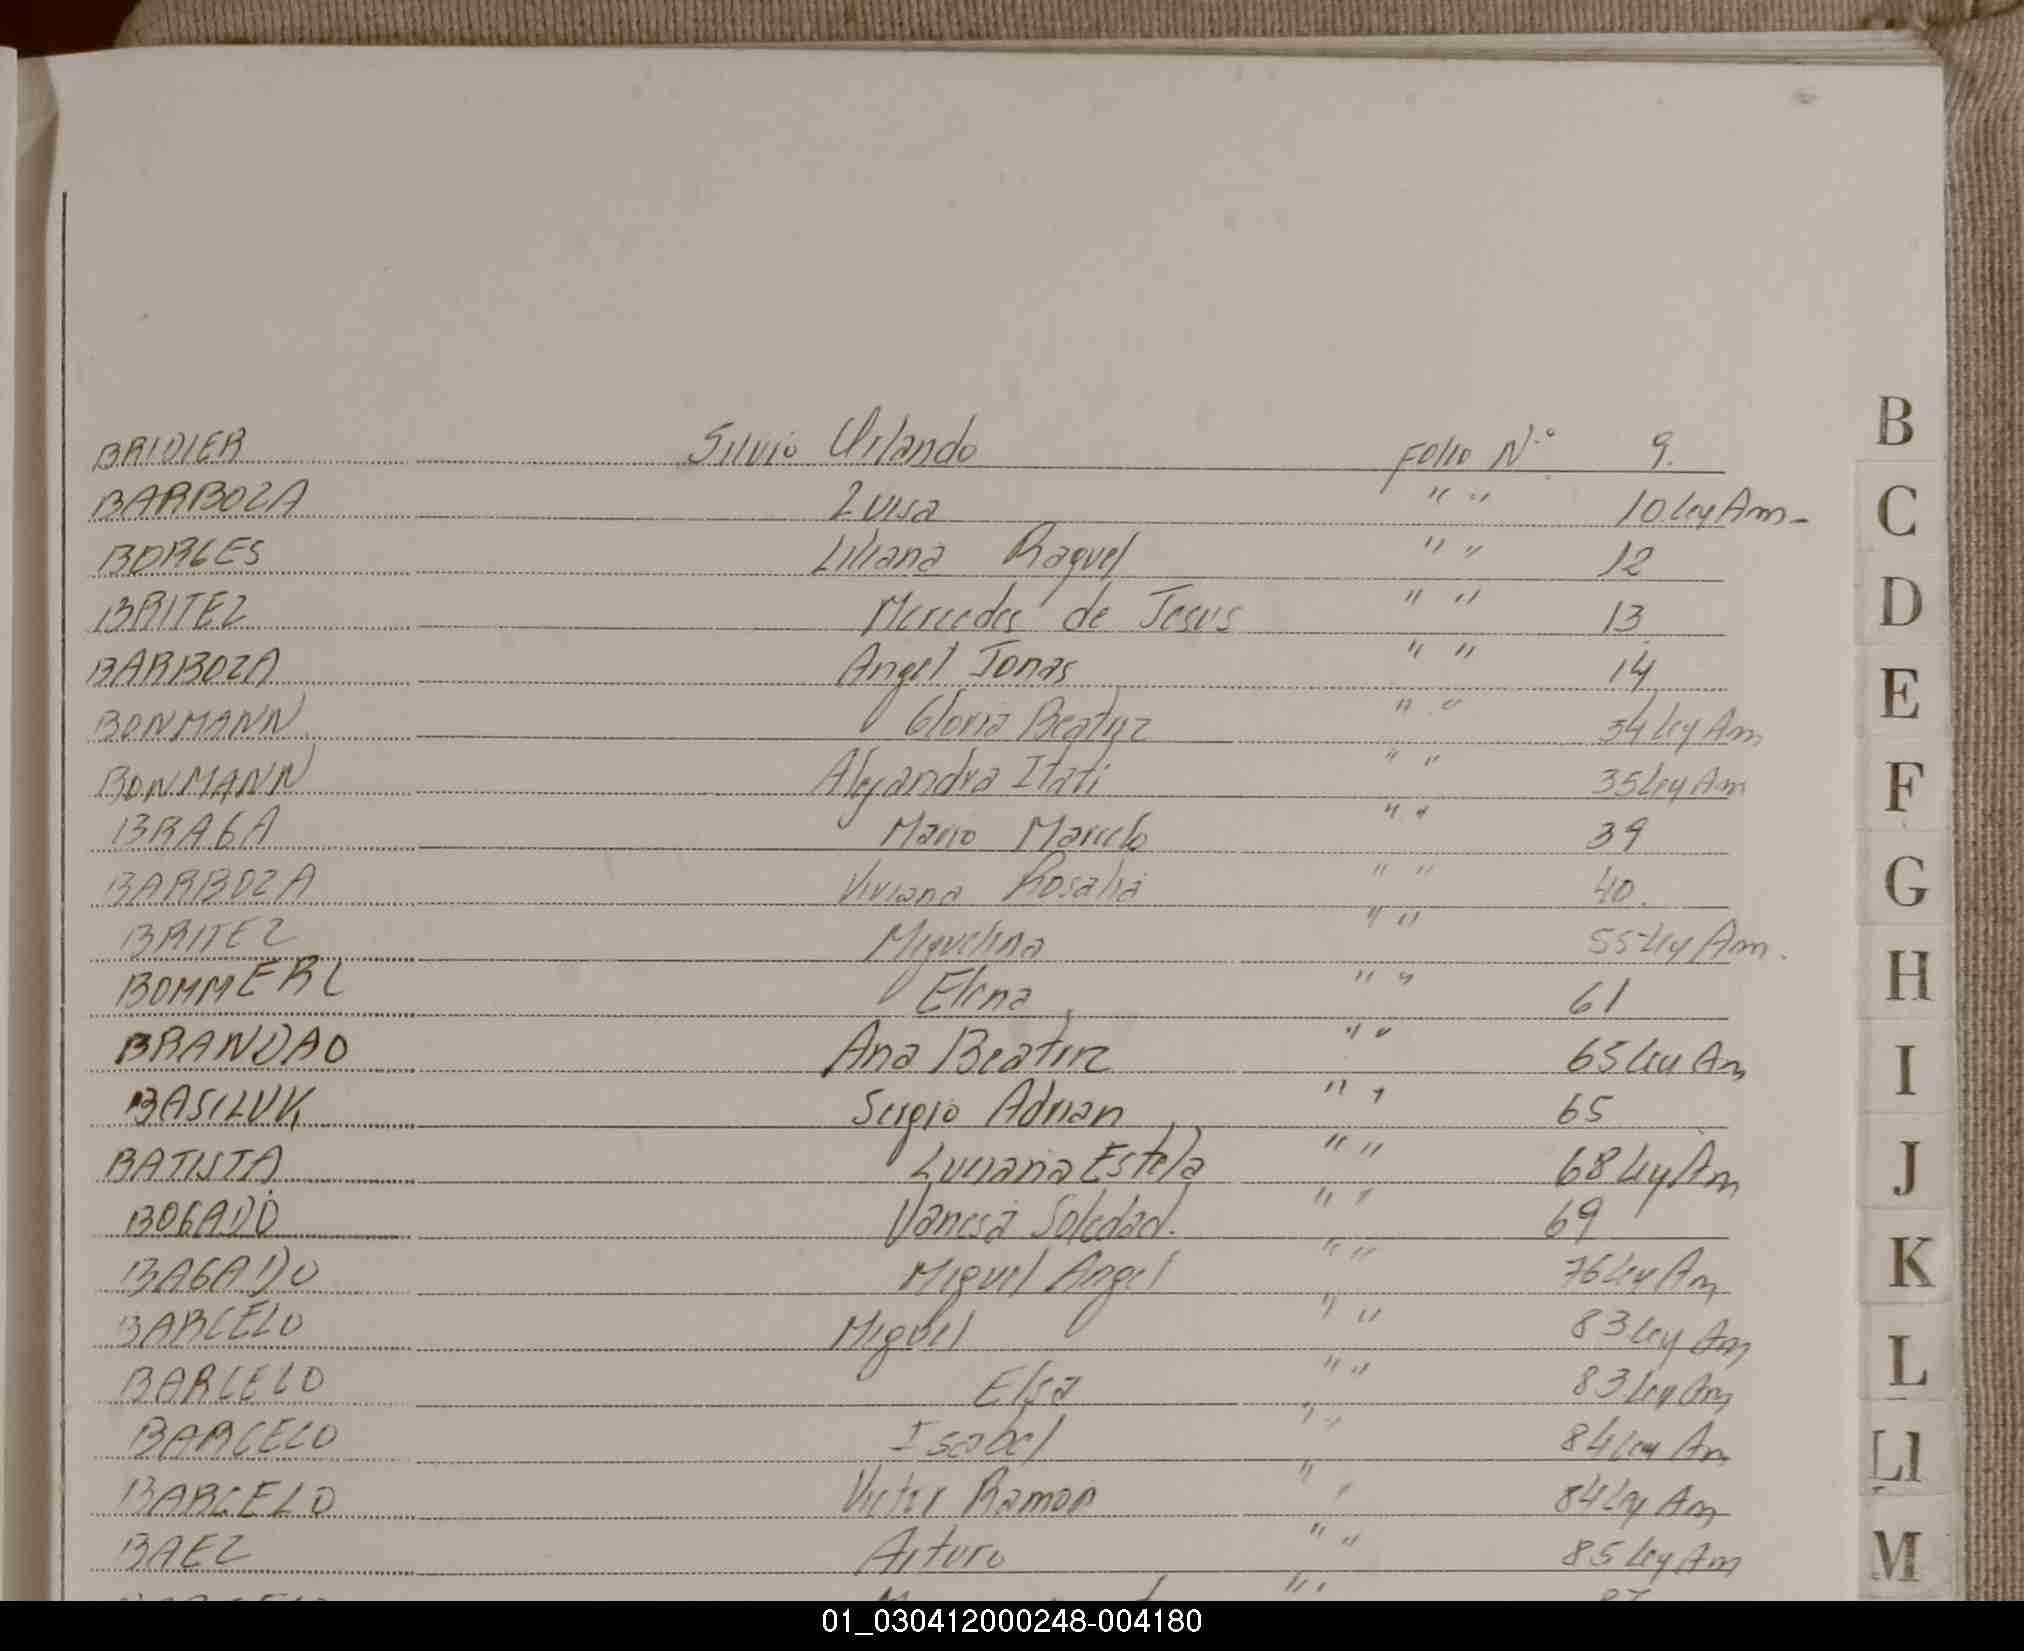 BRIDIER Silvio Orlando Folio N.º 9.
BARBOZA Luisa " " 10 Ley Am-
BORGES Liliana Raquel " " 12
BRITEZ Mercedes de Jesus " " 13
BARBOZA Angel Jonas " " 14
BONMANN Gloria Beatriz " " 34 Ley Am
BONMANN Alejandra Itati " " 35 Ley Am
BRAGA Mario Marcelo " " 39
BARBOZA Viviana Rosalia " " 40.
BRITEZ Miguelina " " 55 Ley Am.
BOMMERL Elena " " 61
BRANDAO Ana Beatriz " " 65 Ley Am
BASILUK Sergio Adrian " " 65
BATISTA Luciana Estela " " 68 Ley Am
BOGADO Vanesa Soledad. " " 69
BAGADO Miguel Angel " " 76 Ley Am
BARCELO Miguel " " 83 Ley Am
BARCELO Elsa " " 83 Ley Am
BARCELO Isabel " " 84 Ley Am
BARCELO Victor Ramon " " 84 Ley Am
BAEZ Arturo " " 85 Ley Am
B
C
D
E
F
G
H
I
J
K
L
Ll
M
01_030412000248-004180